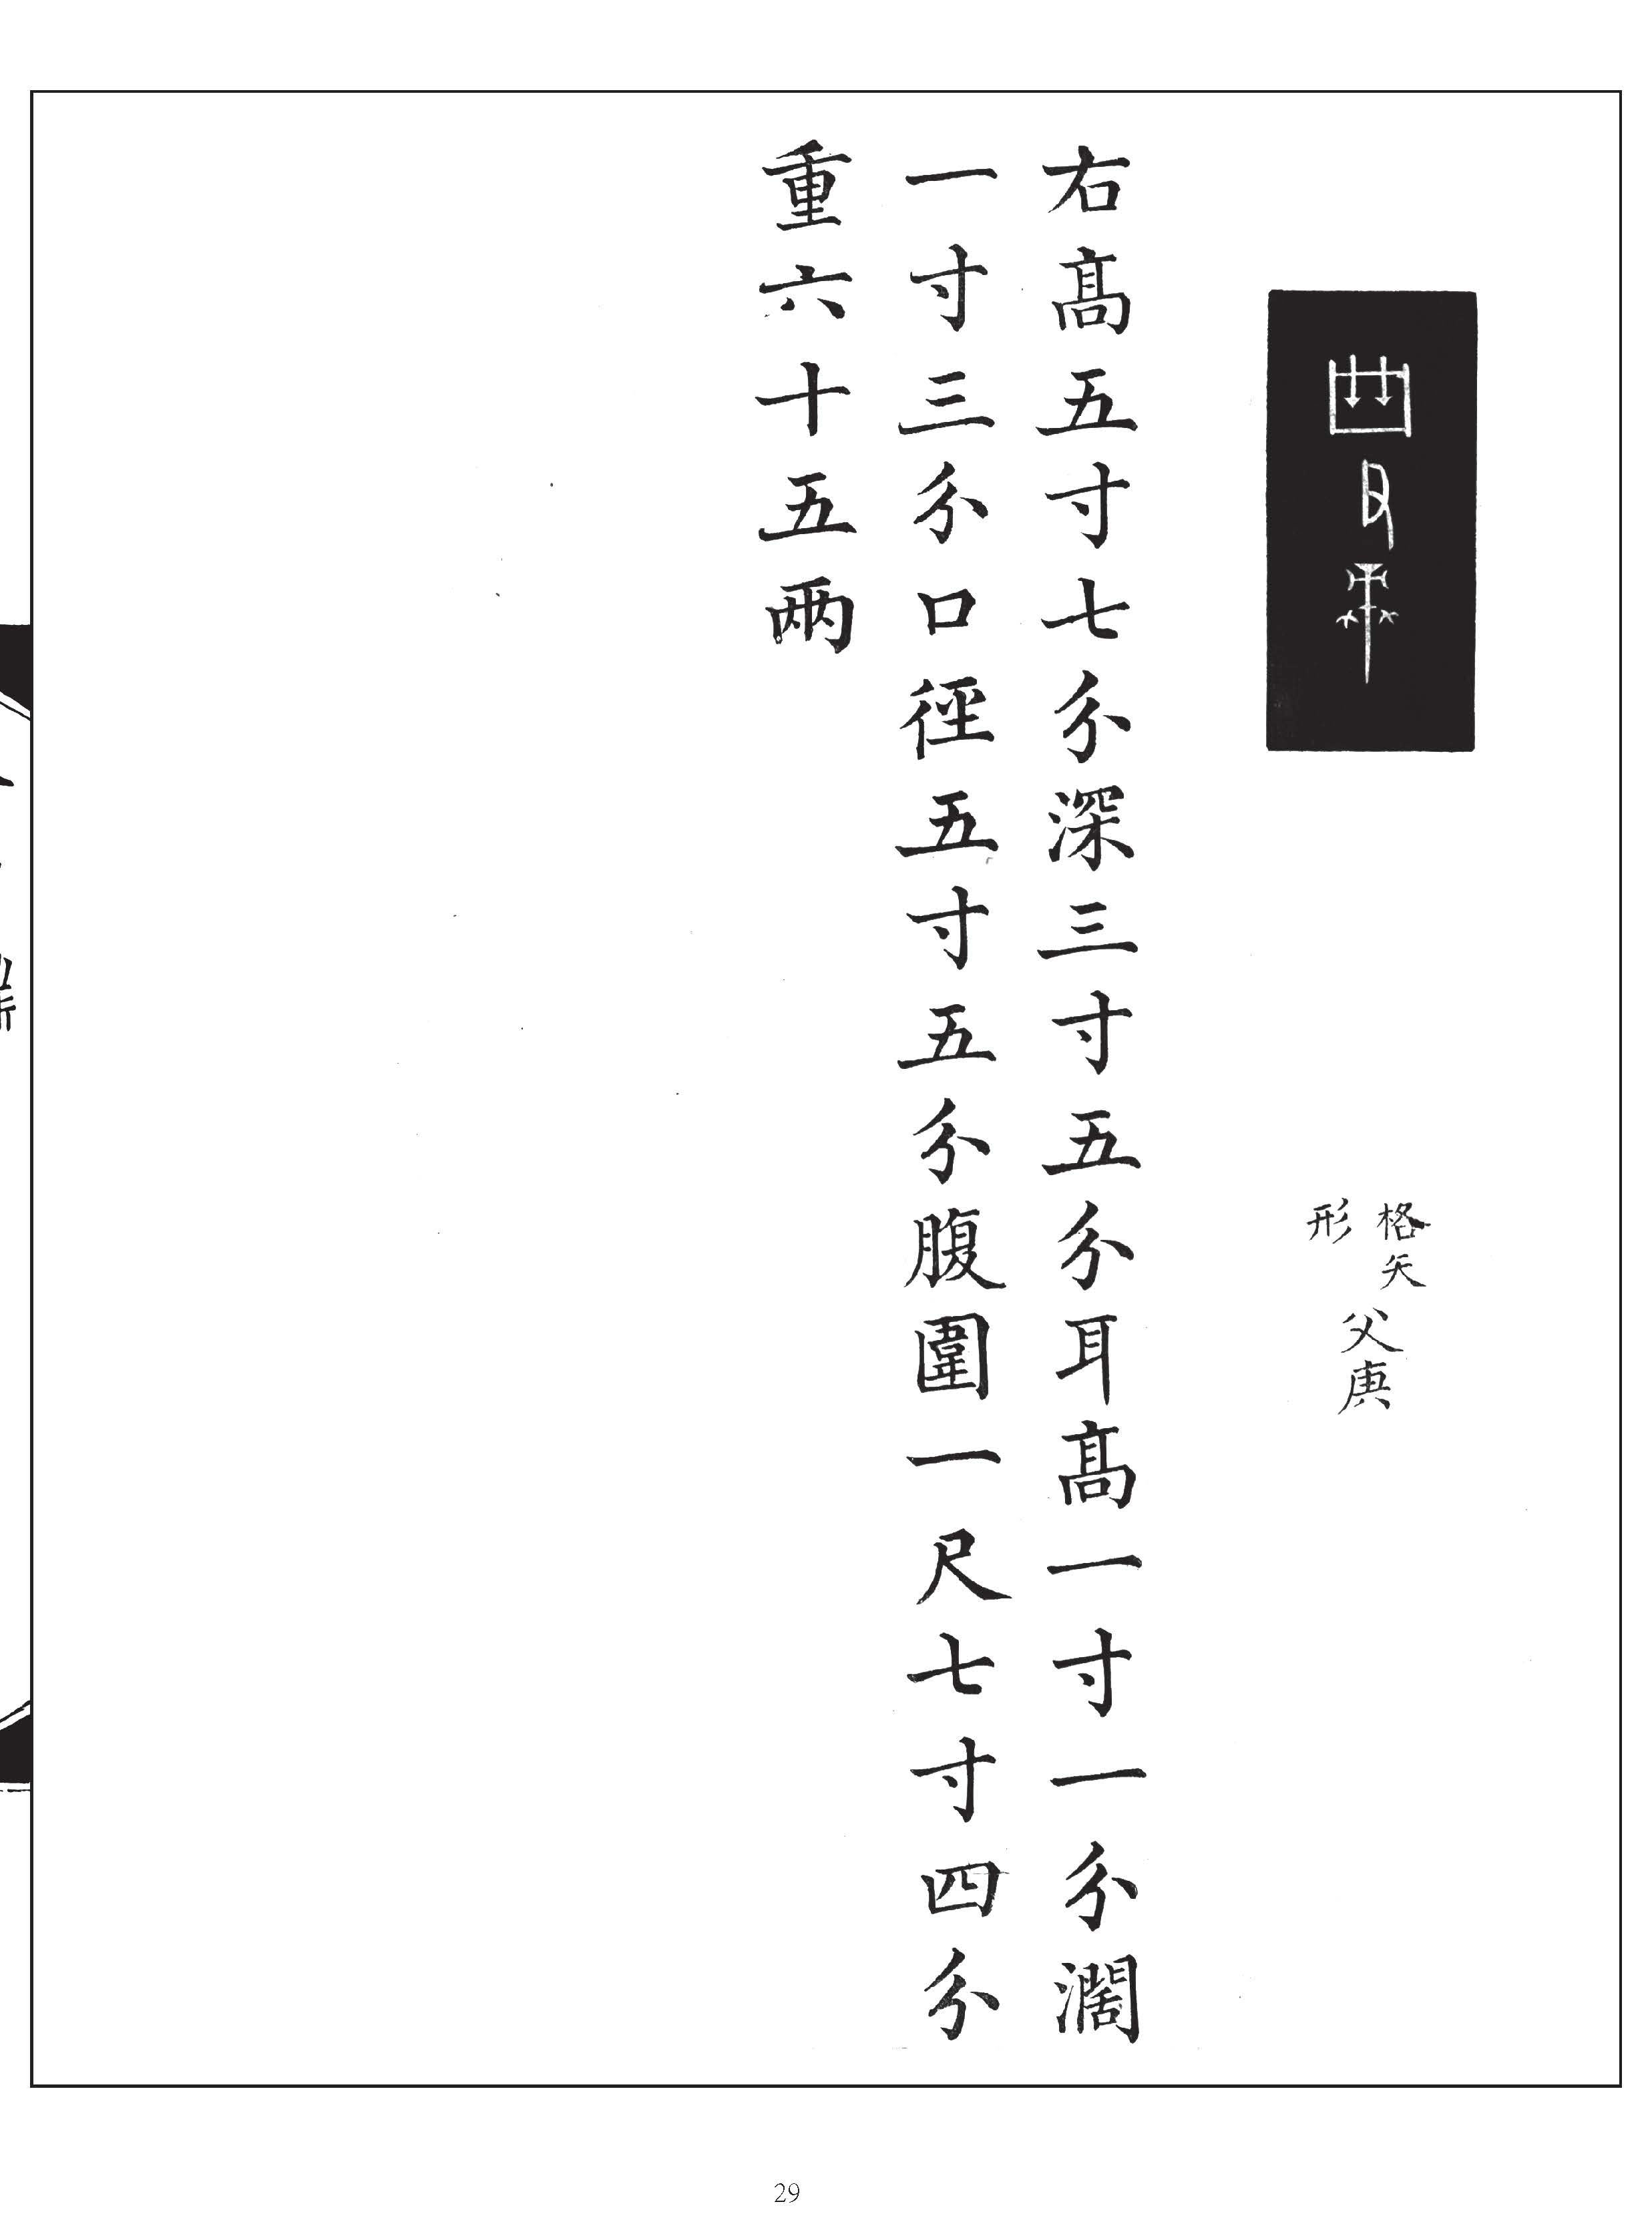 格矢形父庚
右高五寸七分深三寸五分耳高一寸一分濶
一寸三分口徑五寸五分腹圍一尺七寸四分
重六十五两
29